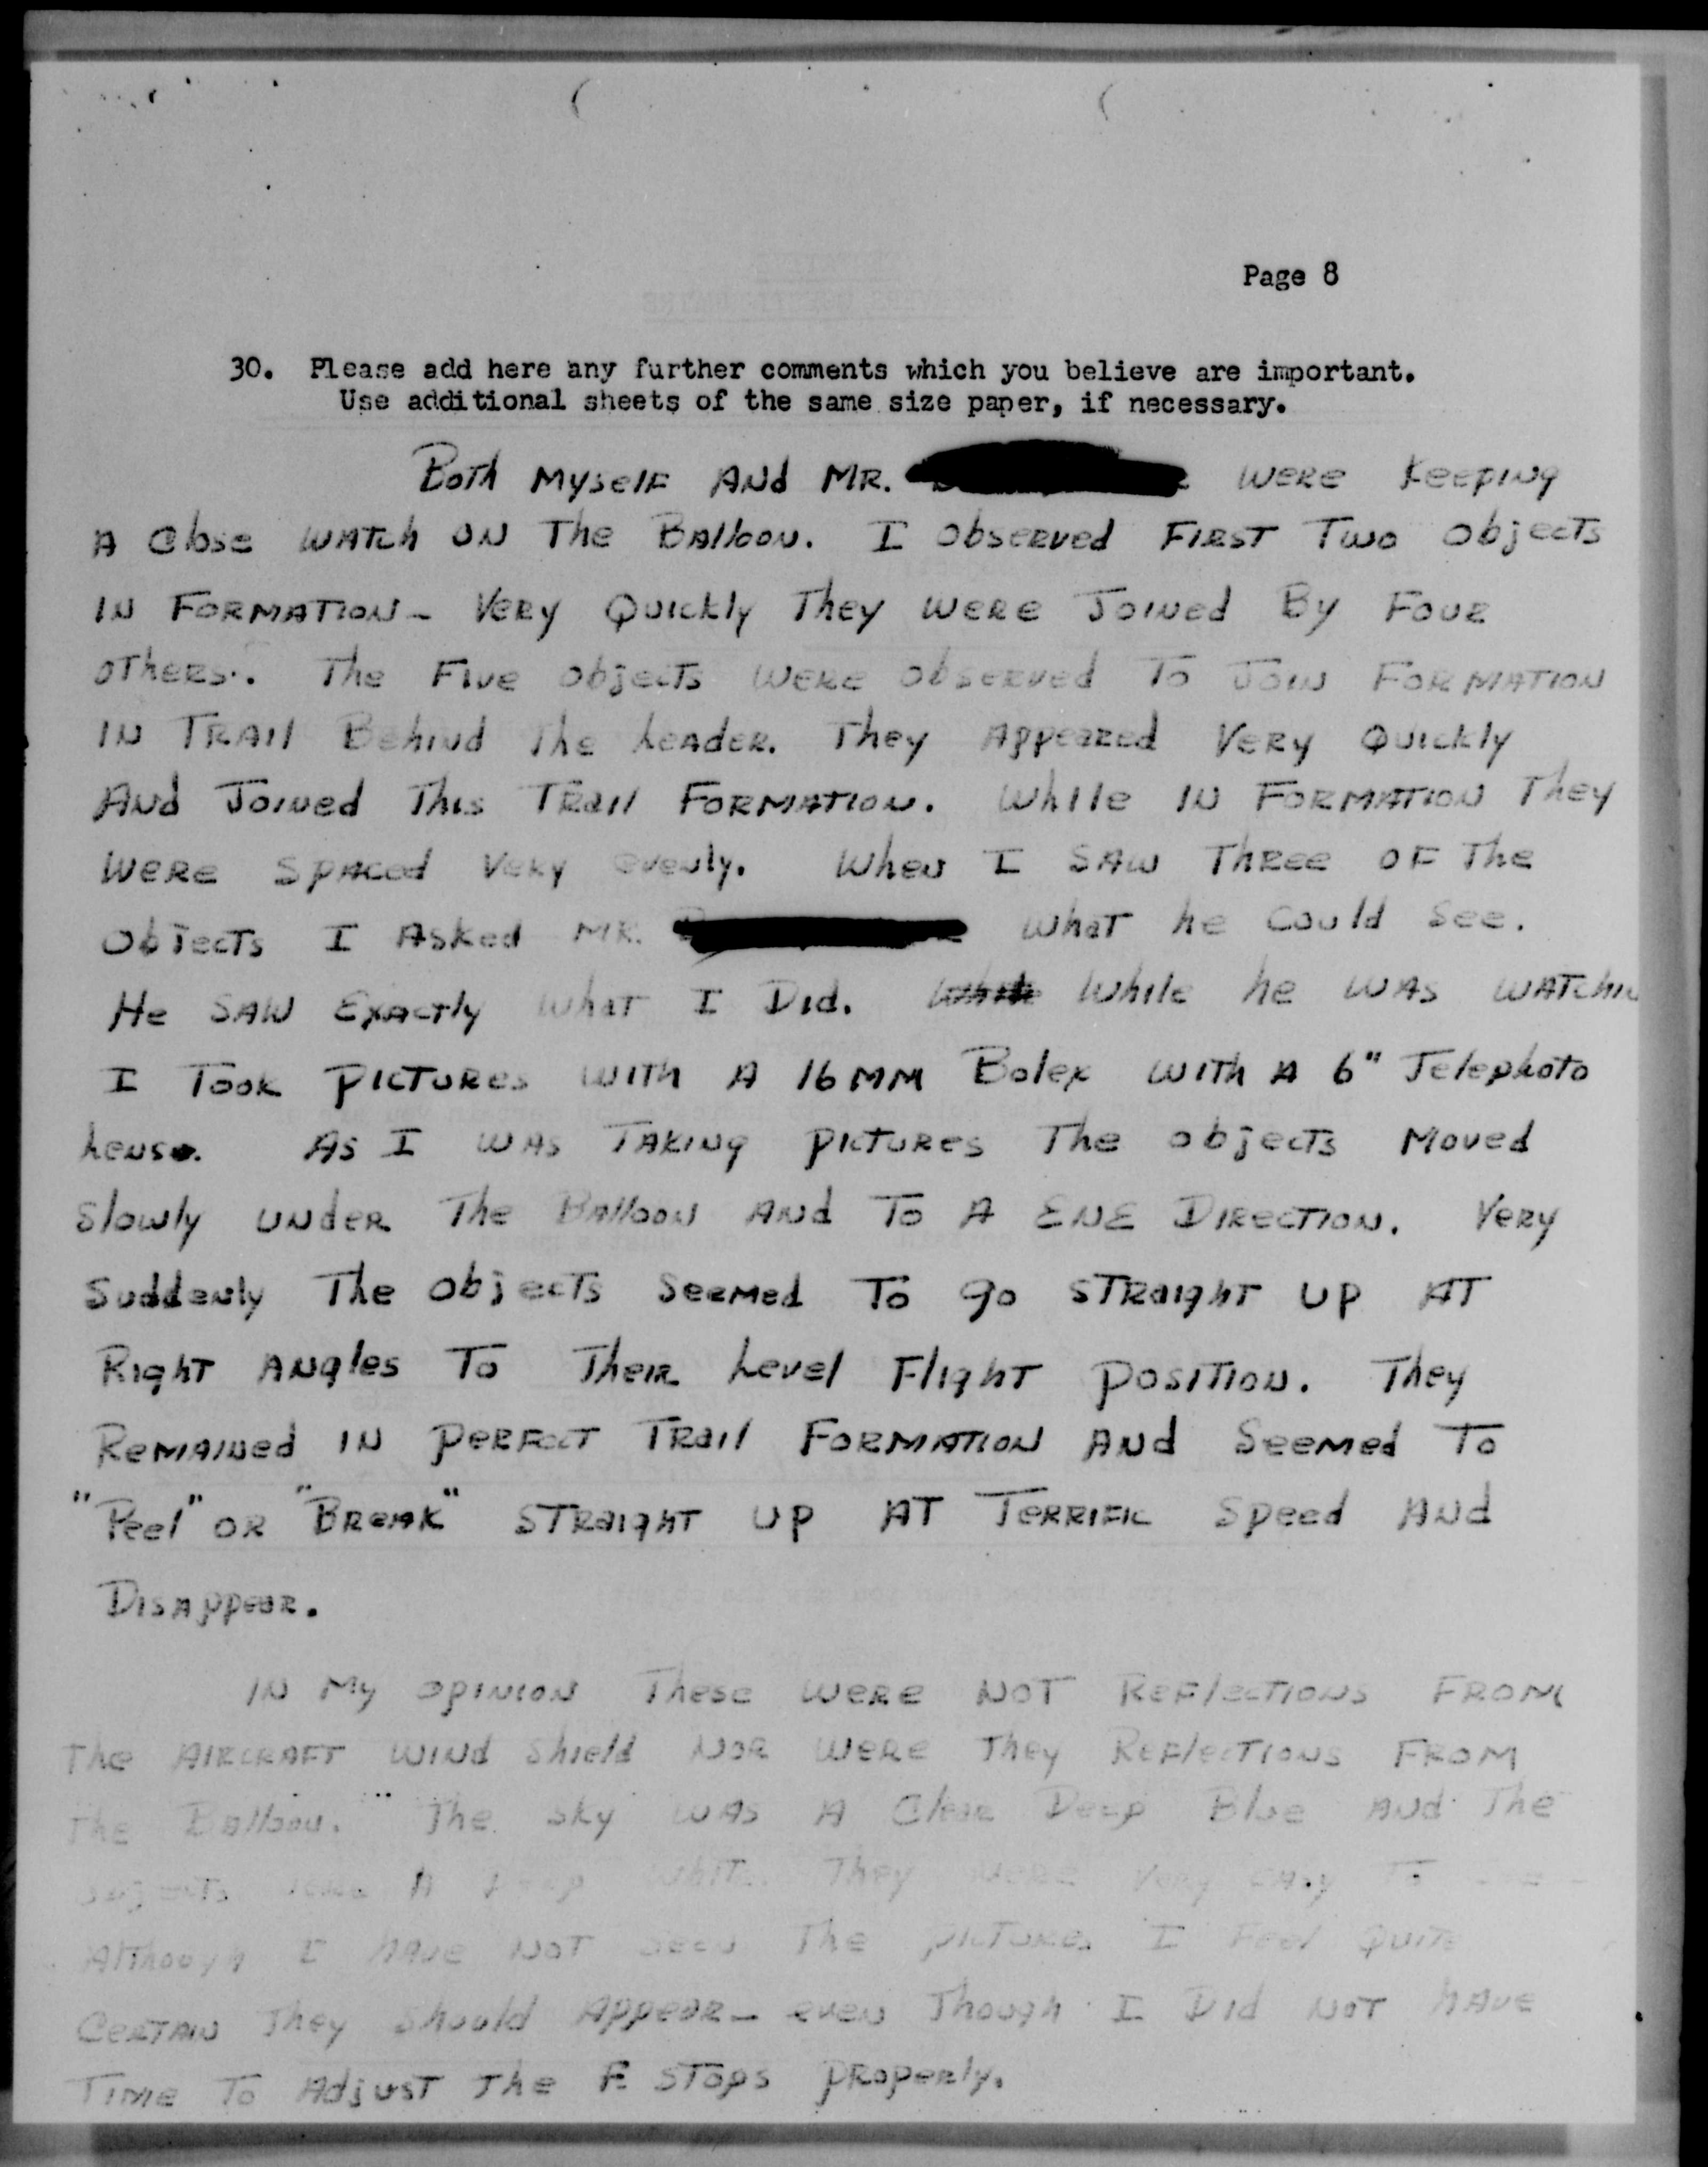 Page 8
30. Please add here any further comments which you believe are important.
Use additional sheets of the same size paper, if necessary.
Both Myself And MR. were keeping
A close watch on the Balloon. I observed first two objects
in formation - Very quickly they were joined by four
others. The five objects were observed to join formation
in trail behind the leader. They appeared very quickly
And joined this trail formation. While in formation they
were spaced very evenly. When I saw three of the
objects I asked MR. what he could see.
He saw exactly what I did. While he was watchin
I took pictures with a 16 MM Bolex with a 6" Telephoto
lens. As I was taking pictures the objects moved
slowly under the Balloon and to a ENE direction. Very
suddenly the objects seemed to go straight up at
right angles to their level flight position. They
remained in perfect trail formation and seemed to
"Peel" or "Break" straight up at terrific speed and
Disappear.
In my opinion these were not reflections from
the aircraft wind shield nor were they reflections from
the Balloon. The sky was a clear deep blue and the
objects were a white. They were very easy to
Although I have not seen the pictures I feel quite
certain they should appear - even though I did not have
time to adjust the F. stops properly.